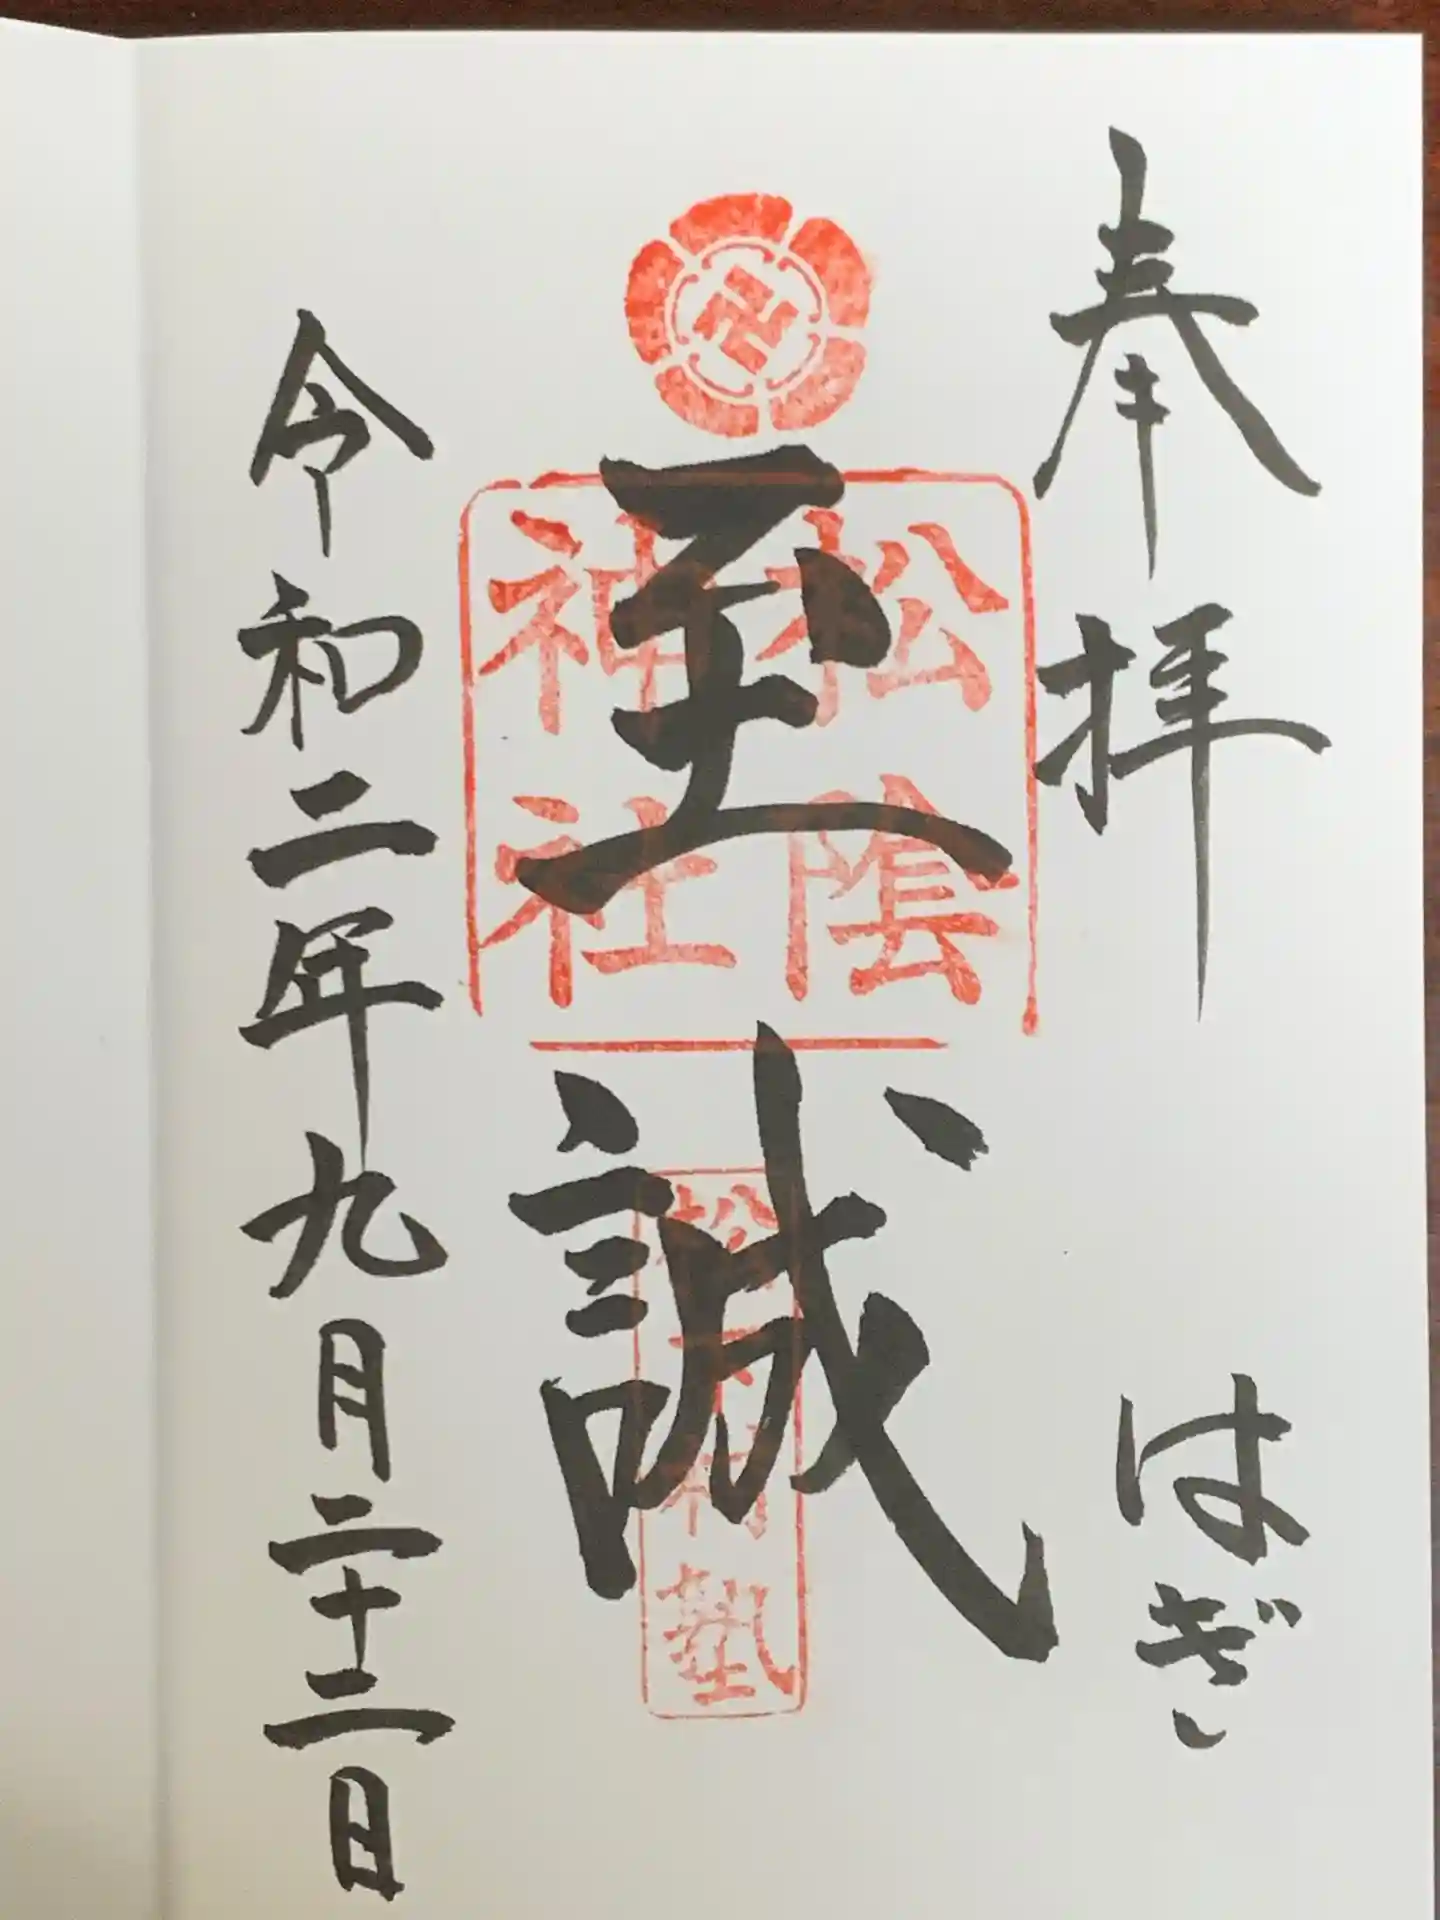 奉拝 はぎ
至誠
松陰
神社
松下村塾
令和二年九月二十二日